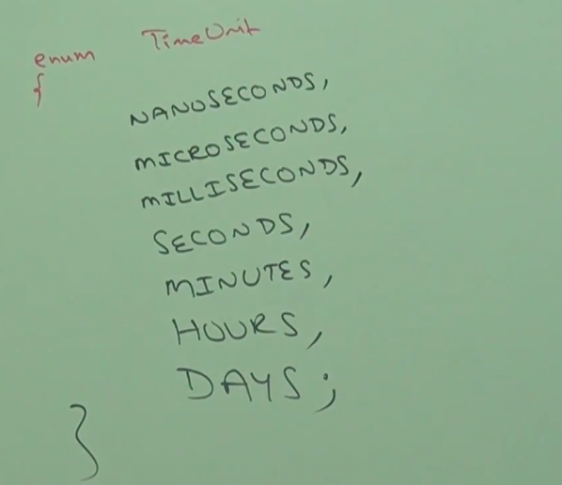 enum TimeUnit
{
NANOSECONDS,
MICROSECONDS,
MILLISECONDS,
SECONDS,
MINUTES,
HOURS,
DAYS;
}